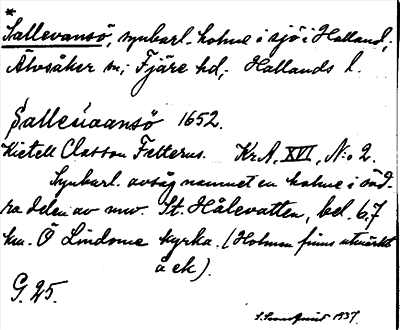 *
Sallevansö, synbarl. holme i sjö i Halland;
Älvsåker sn; Fjäre hd, Hallands l.
Salleuaansö 1652.
Kietell Classon Felterus. Kr.A, XVI, N:o 2.
Synbarl. avsåg namnet en holme i söd-
ra delen av nuv. St. Hålevatten, bel. 6,7
km. Ö Lindome kyrka. (Holmen finns utmärkt
å ek).
G. 25.
1937.